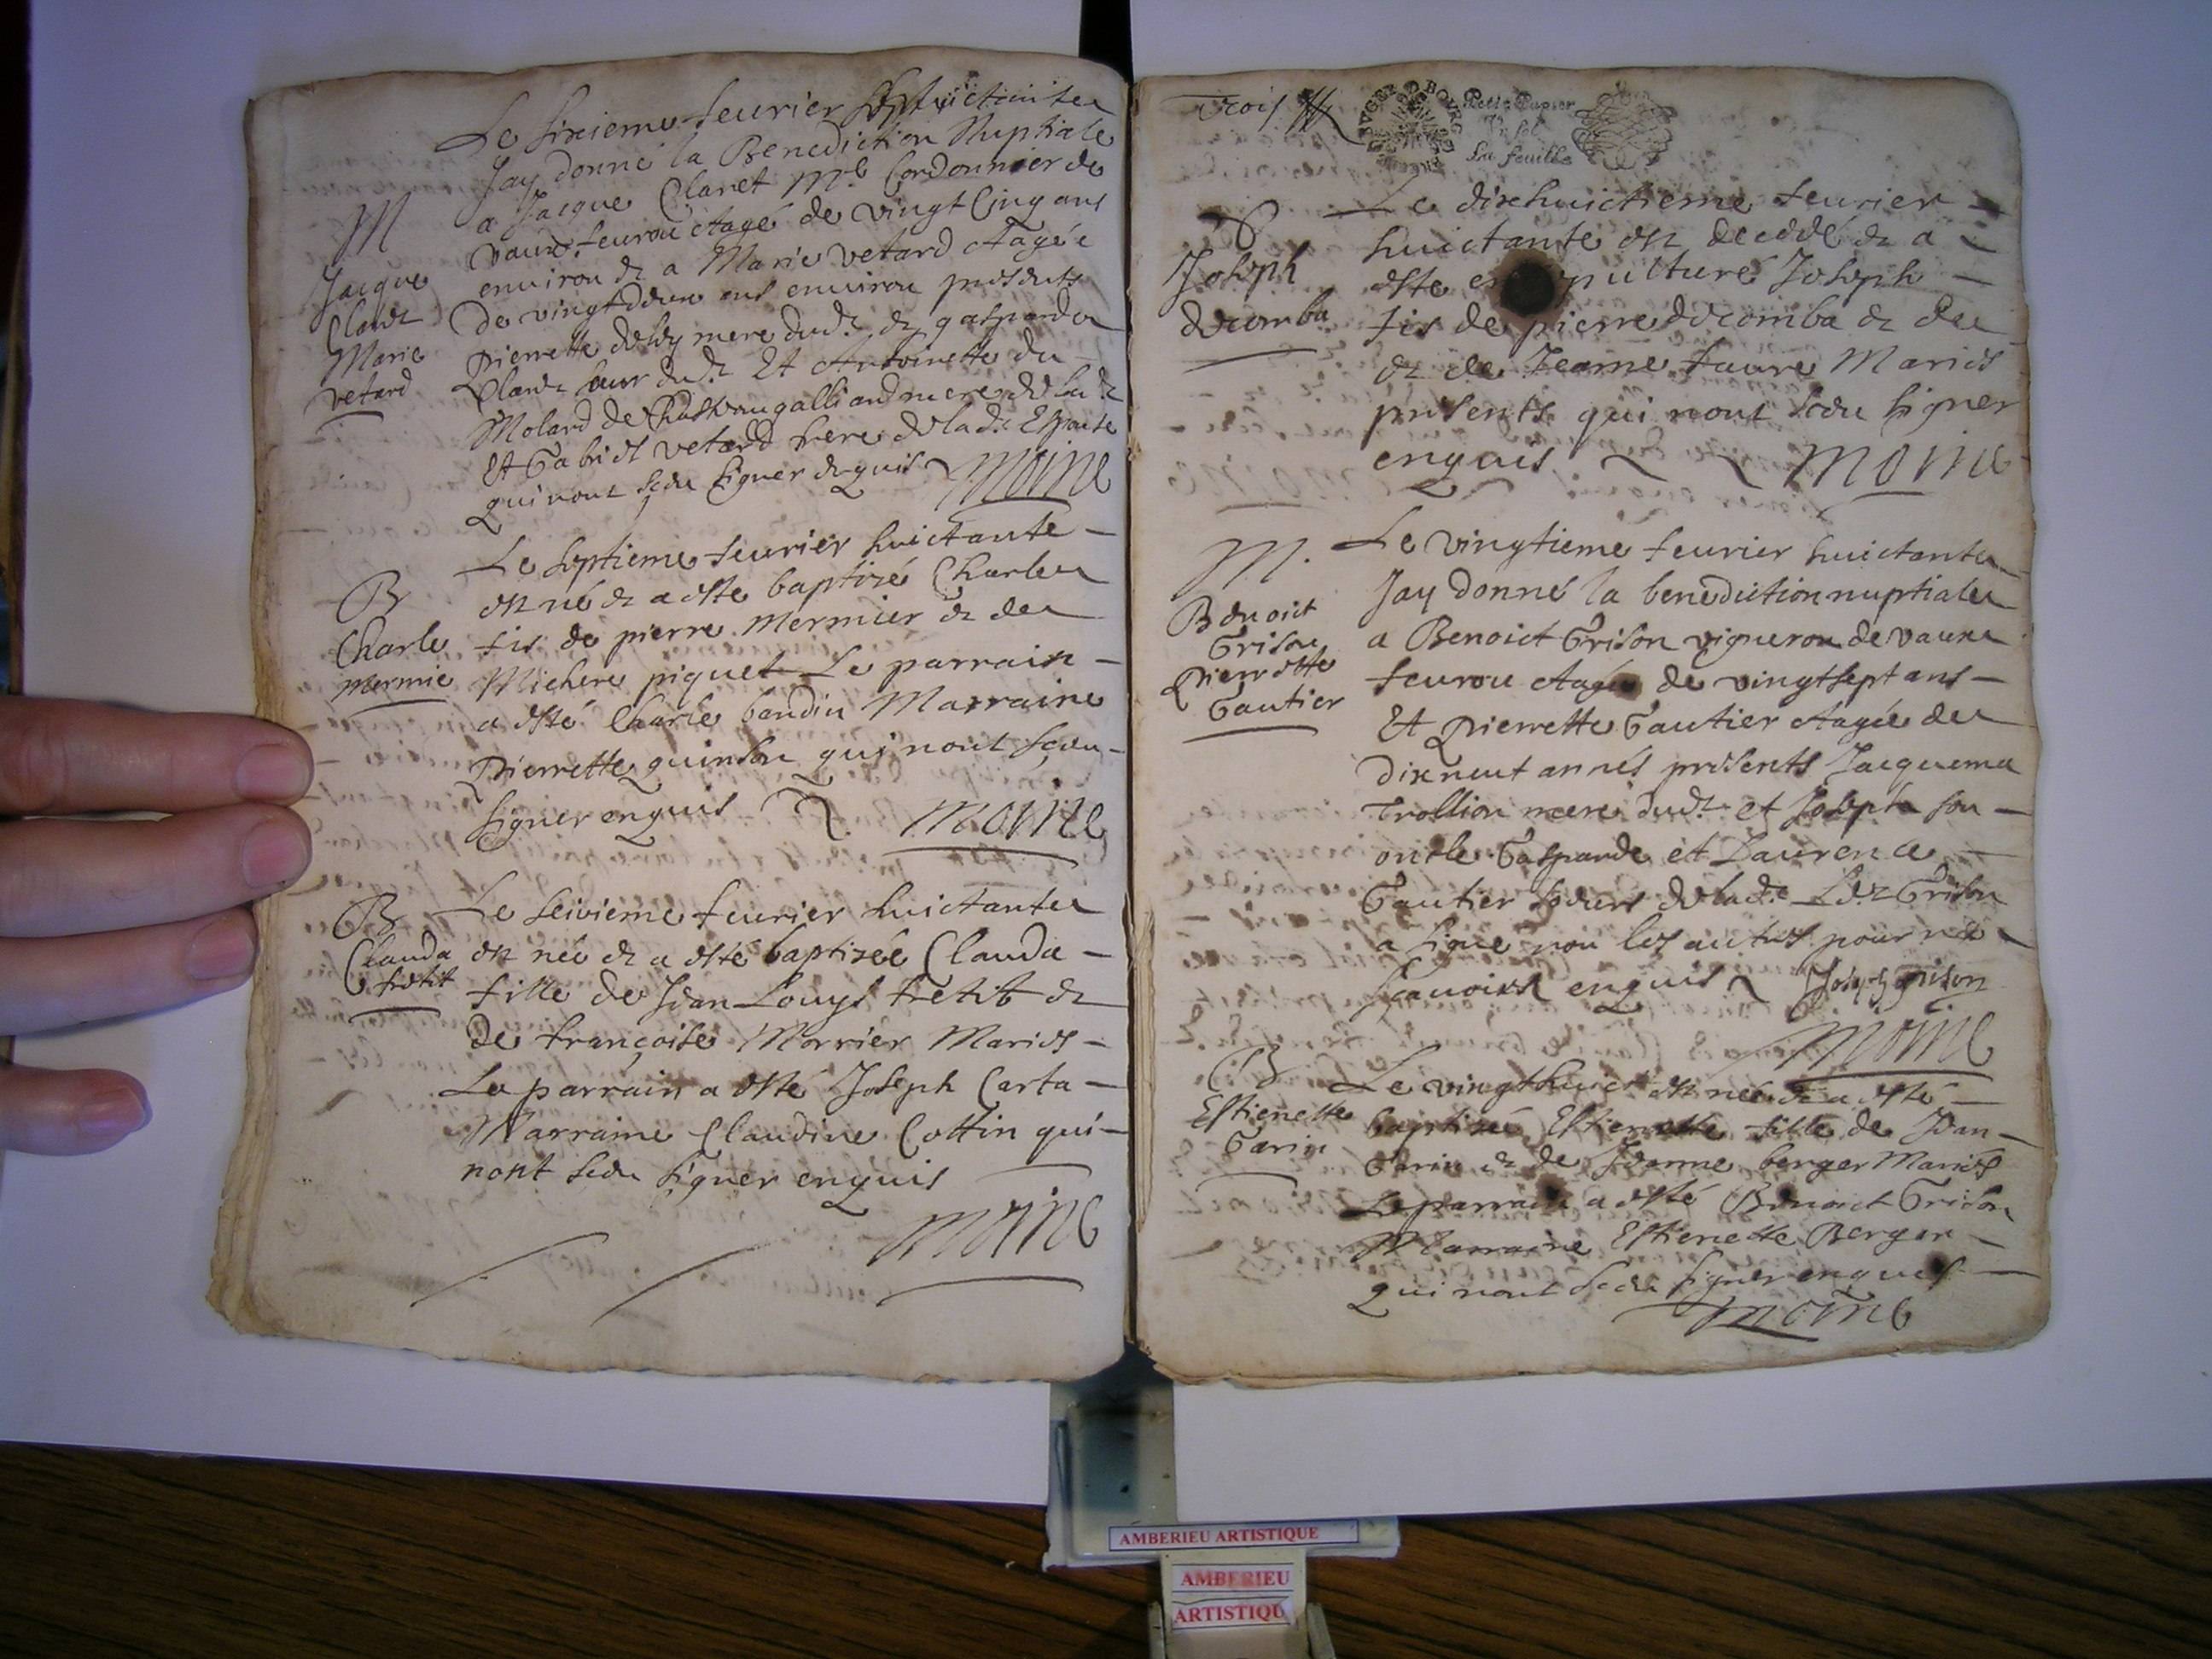 Le sixieme feurier huictante
Jay donné la Benediction Nuptiale
a Jacque Claret Mre Cordonnier de
vaux feurou Aagé de vingt Cinq ans
enuiron & a Marie vetard Aagée
De vingt deux ans enuiron presents
pierrette mere dud. & gasparde
Claret seur dud. Et Antoinette du
Molard de mere de lad.
Et Gabriel vetard frere de lad. Espouse
qui nont sceu signer enquis
Moine
M
Jacque
Claret
Marie
vetard
Le septieme feurier huictante
est né & a esté baptizé Charle
fis de pierre Mermier & de
Michere piquet Le parrain
a esté Charle baudin Marraine
Pierrette quinson qui nont sceu
signer enquis
Moine
B
Charle
Mermie
Le seizieme feurier huictante
est née & a esté baptizée Clauda
fille de Jean Louys fretit &
de françoise Morrier Maries
Le parrain a esté Joseph Carta
Marraine Claudine Cottin qui
nont sceu signer enquis
Moine
B
Clauda
fretit
Trois
BVGEY BOVRG
Petit Papier
Vn sol
La feuille
Le dixhuictieme feurier
huictante est decedé & a
esté en pulture Joseph
fis de pierre decomba & de
& de Jeanne faure Maries
presents qui nont sceu signer
enquis
Moine
Joseph
decomba
Le vingtieme feurier huictante
Jay donné la benediction nuptiale
a Benoict Grison vigneron de vaux
feurou Aagé de vingtsept ans
Et Pierrette Gautier Aagée de
dixneuf annés presents Jacquema
Trollion mere dud. et Joseph son
oncle Gasparde et Laurence
Gautier soeurs de lad. Led. Grison
a signé non les autres pour ne
scauoir enquis
Joseph grison
Moine
M.
Benoict
Grison
Pierrette
Gautier
Le vingthuict est née & a esté
baptizée Estienette fille de Jean
Garin & de Jeanne berger Maries
Le parrain a esté Benoict Grison
Marraine Estienette Berger
qui nont sceu signer enquis
Moine
B
Estienette
Garin
AMBERIEU ARTISTIQUE
AMBERIEU
ARTISTIQU